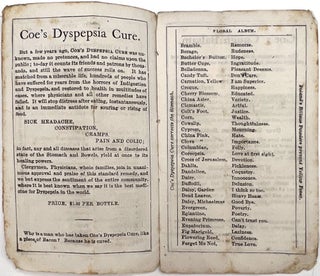 Coe's Dyspepsia Cure.
But a few years ago, COE'S DYSPEPSIA CURE was un-
known, made no pretences, and had no claims upon the
public; to-day it counts its friends and patrons by thous-
ands, and still the wave of success rolls on. It has
snatched from a miserable life, hundreds of people who
have suffered for years from the horrors of Indigestion
and Dyspepsia, and restored to health in multitudes of
cases, where physicians and all other remedies have
failed. It will stop distress after eating, instantaneously,
and is an immediate remedy for souring or rising of
food.
SICK HEADACHE,
CONSTIPATION,
CRAMPS
PAIN AND COLIC;
in fact, any and all diseases that arise from a disordered
state of the Stomach and Bowels, yield at once to its
healing powers.
Clergymen, Physicians, whole families, join in unani-
mous approval and praise of this standard remedy, and
we but express the sentiment of the entire community,
where it is best known, when we say it is the best medi-
cine for Dyspepsia in the world.
PRICE, $1.00 PER BOTTLE.
Why is a man who has taken Coe's Dyspepsia Cure, like
a piece of Bacon? Because he is cured.
FLORAL ALBUM.
Coe's Dyspepsia Cure corrects the Stomach.
Bramble, Remorse.
Borage, Rudeness.
Bachelor's Button, Hope.
Butter Cups, Ingratitude.
Belladonna, Pleasant Dreams.
Candy Tuft, Don't Care.
Carnation, Yellow, I am Superior.
Crocus, Happiness.
Cherry Blossom, Educated.
China Aster, Variety.
Clematis, Artful.
Colt's Foot, Justice.
Corn, Wealth.
Cowslip, Thoughtfulness.
Cypress, Mourning.
China Pink, Hate.
Clover, Importunate.
Columbine, Folly.
Coreopsis, Love at first sight.
Cross of Jerusalem, Devotion.
Dahlia, Fickleness.
Dandelion, Coquetry.
Daisy, Innocent.
Daffodil, Delusion.
Daisy, Garden I think so too.
Dead Leaves, Heavy Heart.
Daisy, Michaelmas Good Bye.
Evergreen, Poverty.
Eglantine, Poetry.
Evening Primrose, Can't trust you.
Eupatorium, Delay.
Fig Marigold, Laziness.
Flowering Reed, Confidence.
Forget Me Not, True Love.